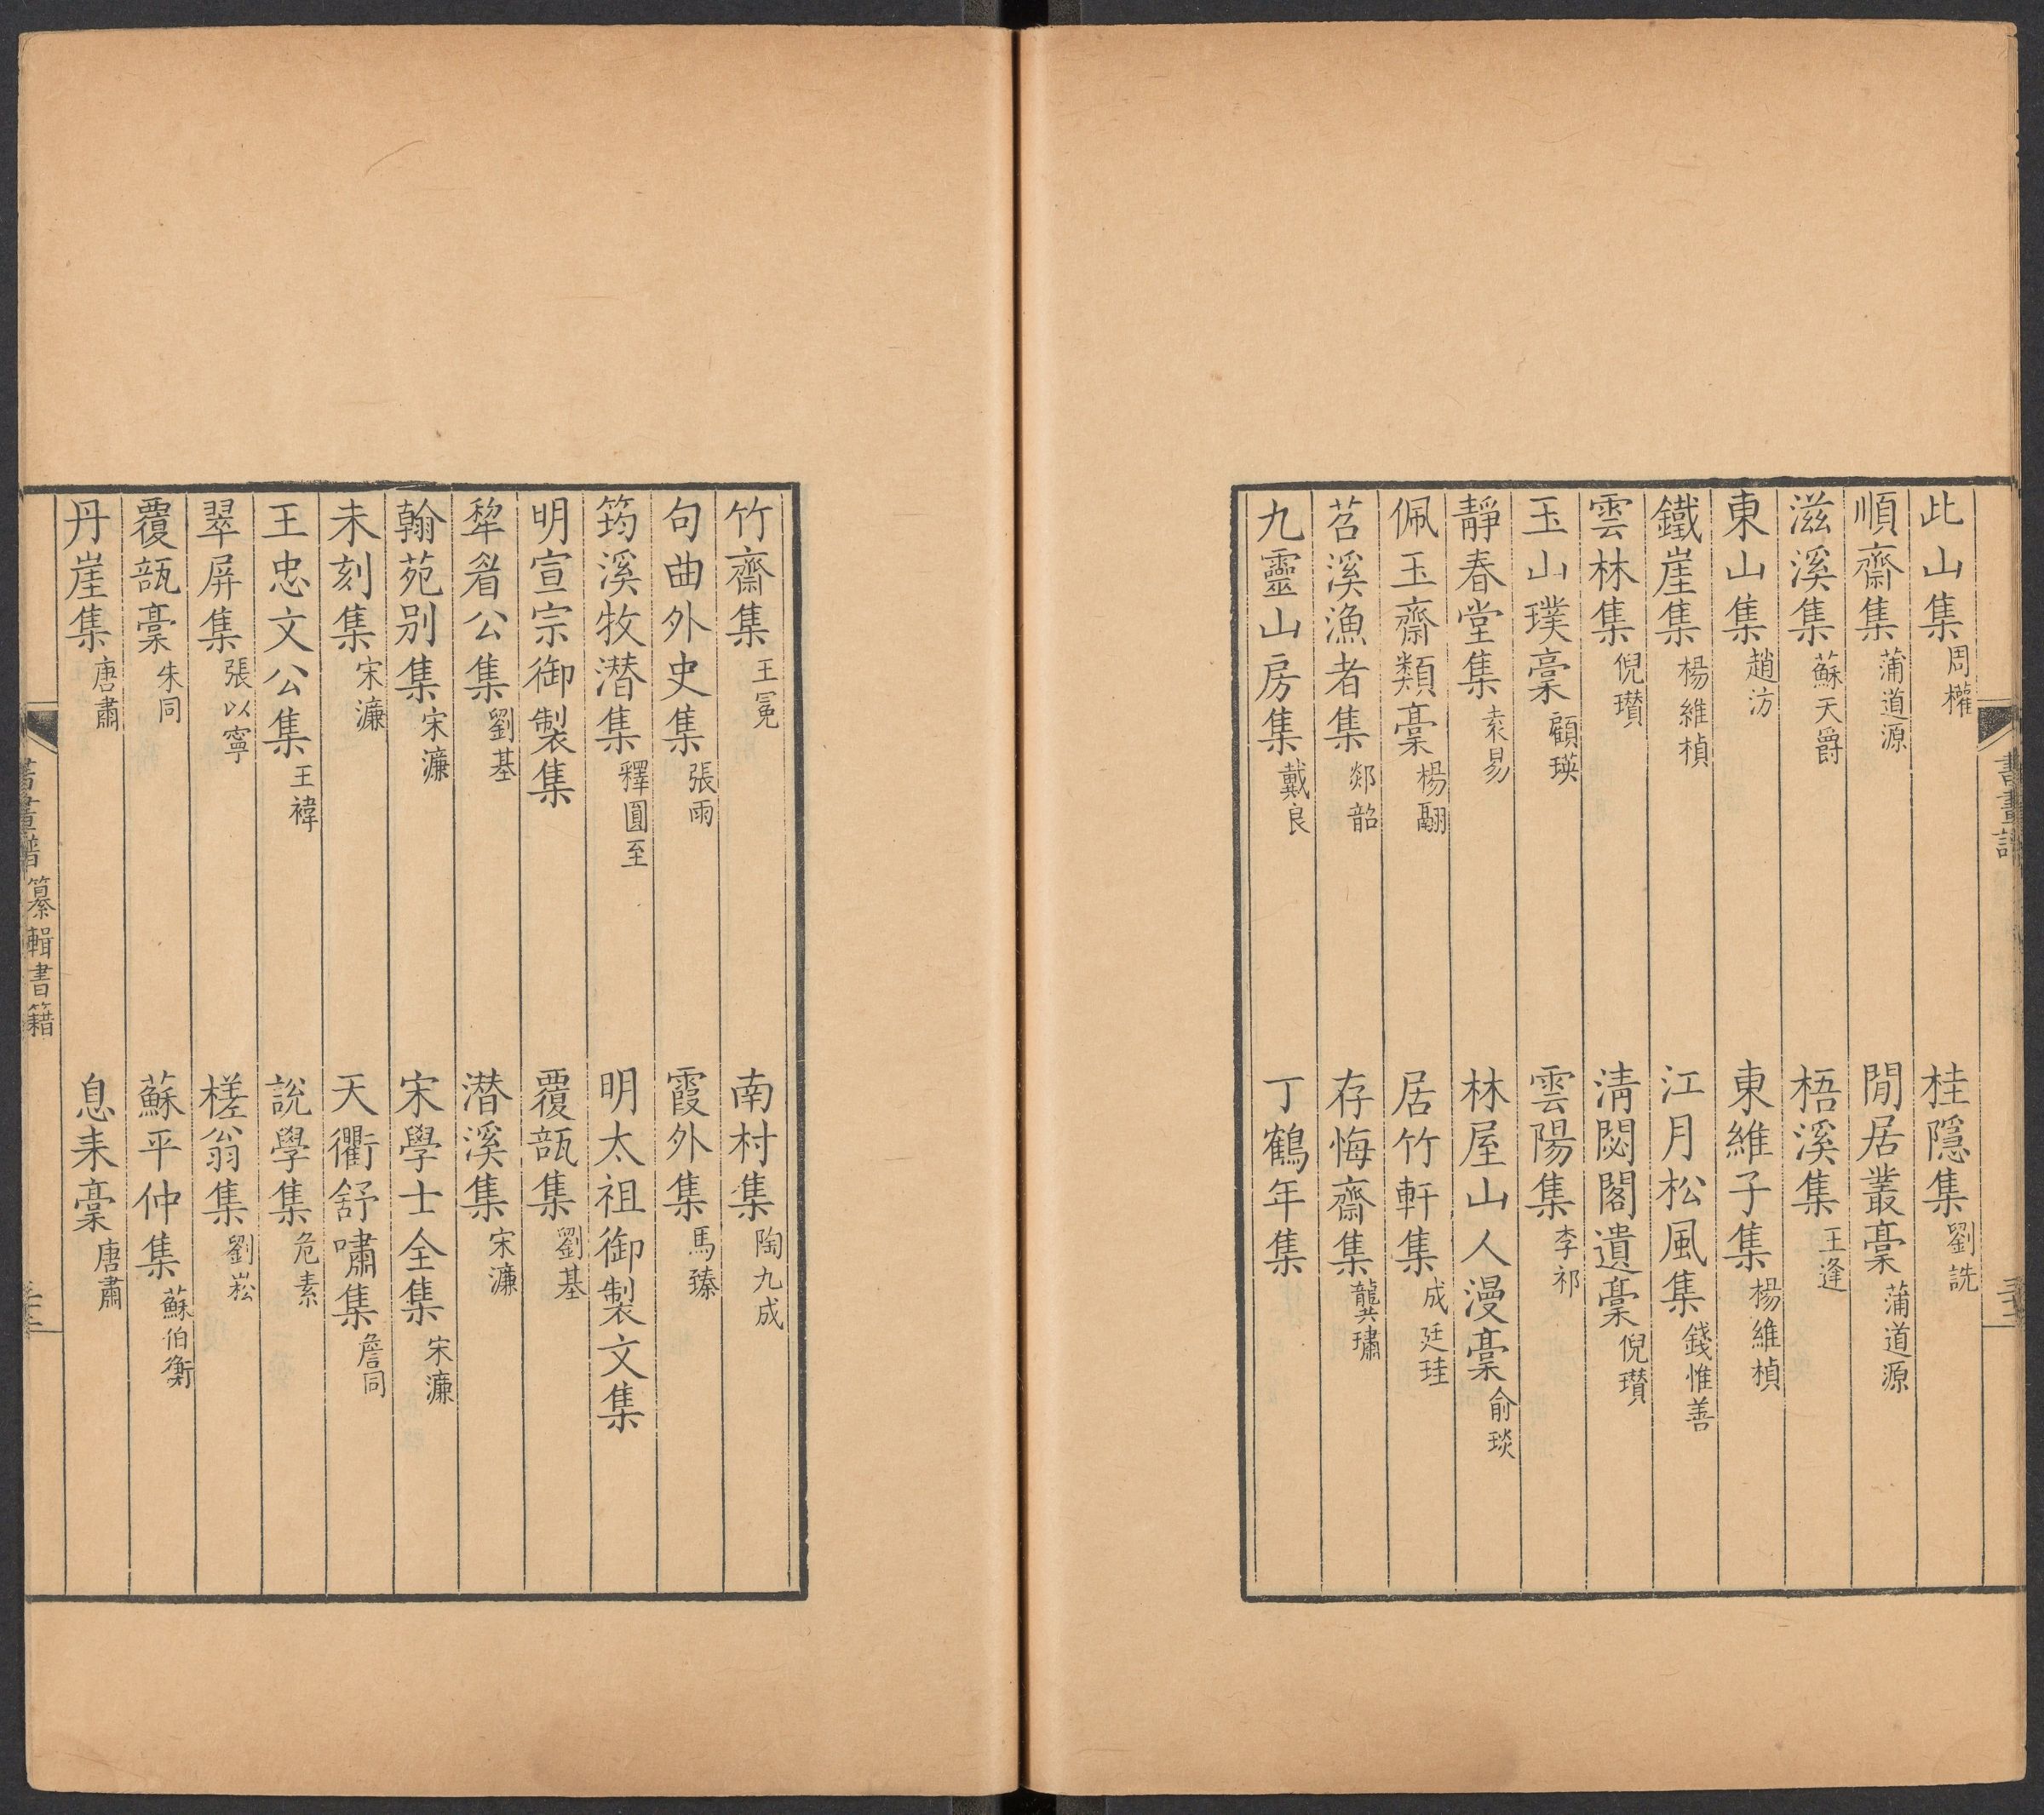 此山集周權　桂隱集劉詵
順齋集蒲道源　閒居叢稾蒲道源
滋溪集蘇天爵　梧溪集王逢
東山集趙汸　東維子集楊維楨
鐵崖集楊維楨　江月松風集錢惟善
雲林集倪瓚　淸閟閣遺稾倪瓚
玉山璞稾顧瑛　雲陽集李祁
靜春堂集袁易　林屋山人漫稾俞琰
佩玉齋類稾楊翮　居竹軒集成廷珪
苕溪漁者集郯韶　存悔齋集龔璛
九靈山房集戴良　丁鶴年集
書畫譜
竹齋集王冕　南村集陶九成
句曲外史集張雨　霞外集馬臻
筠溪牧潛集釋圓至　明太祖御製文集
明宣宗御製集　覆瓿集劉基
犂眉公集劉基　潛溪集宋濂
翰苑別集宋濂　宋學士全集宋濂
未刻集宋濂　天衢舒嘯集詹同
王忠文公集王褘　說學集危素
翠屏集張以寧　槎翁集劉崧
覆瓿稾朱同　蘇平仲集蘇伯衡
丹崖集唐肅　息耒稾唐肅
書畫譜　纂輯書籍